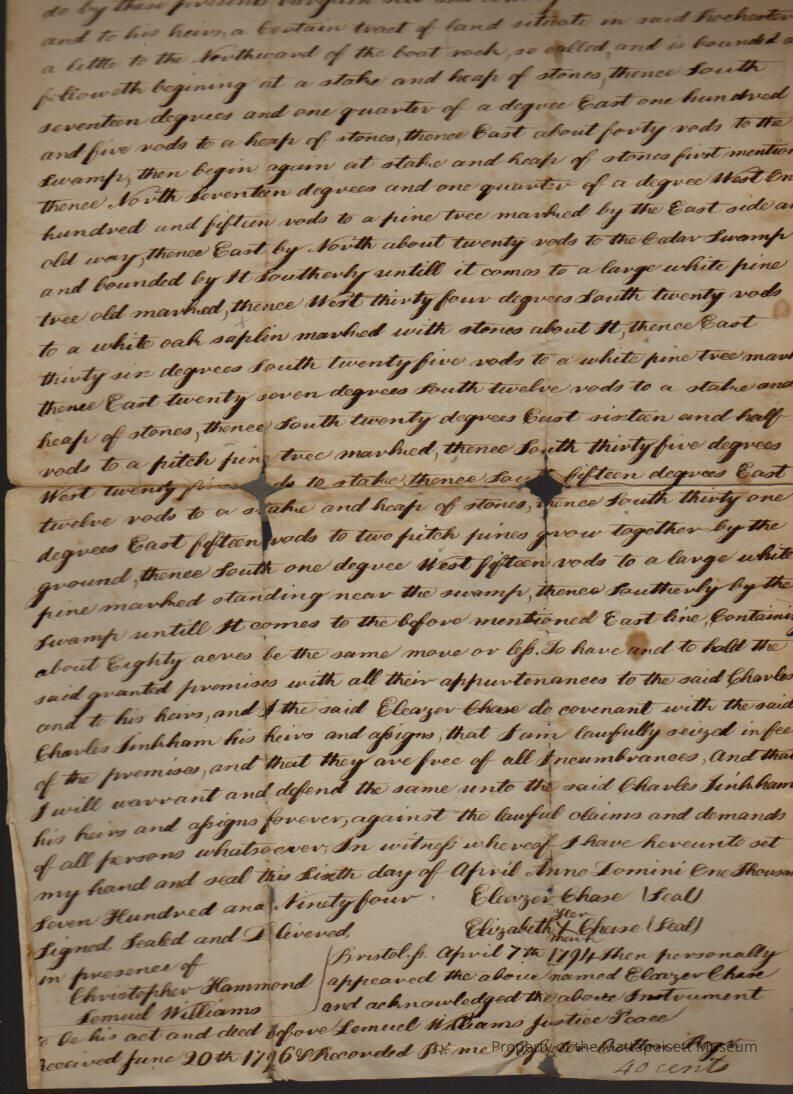 do by these presents bargain sell and
and to his heirs, a Certain tract of land situate in said Rochester
a little to the Northward of the boat rock, so called, and is bounded a
followeth begining at a stake and heap of stones, thence South
seventeen degrees and one quarter of a degree East one hundred
and five rods to a heap of stones, thence East about forty rods to the
Swamp, then begin again at stake and heap of stones first mention
thence North Seventeen degrees and one quarter of a degree West On
hundred and fifteen rods to a pine tree marked by the East side an
old way, thence East by North about twenty rods to the Cedar Swamp
and bounded by It Southerly untill it comes to a large white pine
tree old marked, thence West thirty four degrees South twenty rods
to a white oak saplin marked with stones about It, thence East
thirty six degrees South twenty five rods to a white pine tree mark
thence East twenty seven degrees South twelve rods to a stake and
heap of stones, thence South twenty degrees East sixteen and half
rods to a pitch pine tree marked, thence South thirty five degrees
West twenty ds to stake, thence Sou fifteen degrees East
twelve rods to a stake and heap of stones, thence South thirty one
degrees East fifteen rods to two pitch pines grow together by the
ground, thence South one degree West fifteen rods to a large white
pine marked standing near the swamp, thence Southerly by the
Swamp untill It comes to the before mentioned East line, Containing
about Eighty acres be the same more or less. To have and to hold the
said granted premises with all their appurtenances to the said Charles
and to his heirs, and I the said Eleazer Chase do covenant with the said
Charles Tinkham his heirs and assigns, that I am lawfully seized in fee
of the premises, and that they are free of all Incumbrances, And that
I will warrant and defend the same unto the said Charles Tinkham
his heirs and assigns forever, against the lawful claims and demands
of all persons whatsoever. In witness whereof I have hereunto set
my hand and seal this Sixth day of April Anno Domini One Thousan
Seven Hundred and Ninety four. Eleazer Chase (Seal)
Signed, Sealed and Delivered, Elizabeth her X mark Chase (Seal)
in presence of Bristol ss. April 7th 1794 Then personally
Christopher Hammond appeared the above named Eleazer Chase
Lemuel Williams and acknowledged the above Instrument
to be his act and deed before Lemuel Williams Justice Peace
Received June 20th 1796 & Recorded Pr me
40 cents
Property of the Mattapoisett Museum